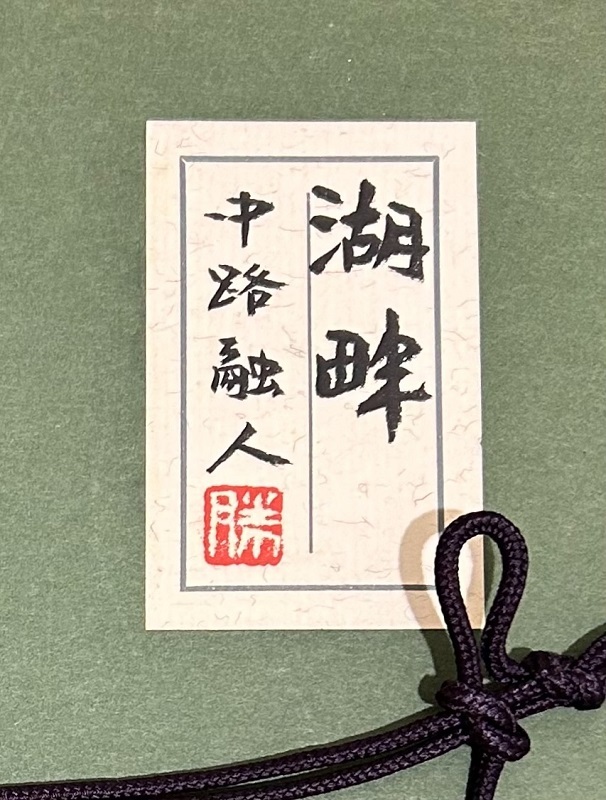 湖畔
中路融人
勝